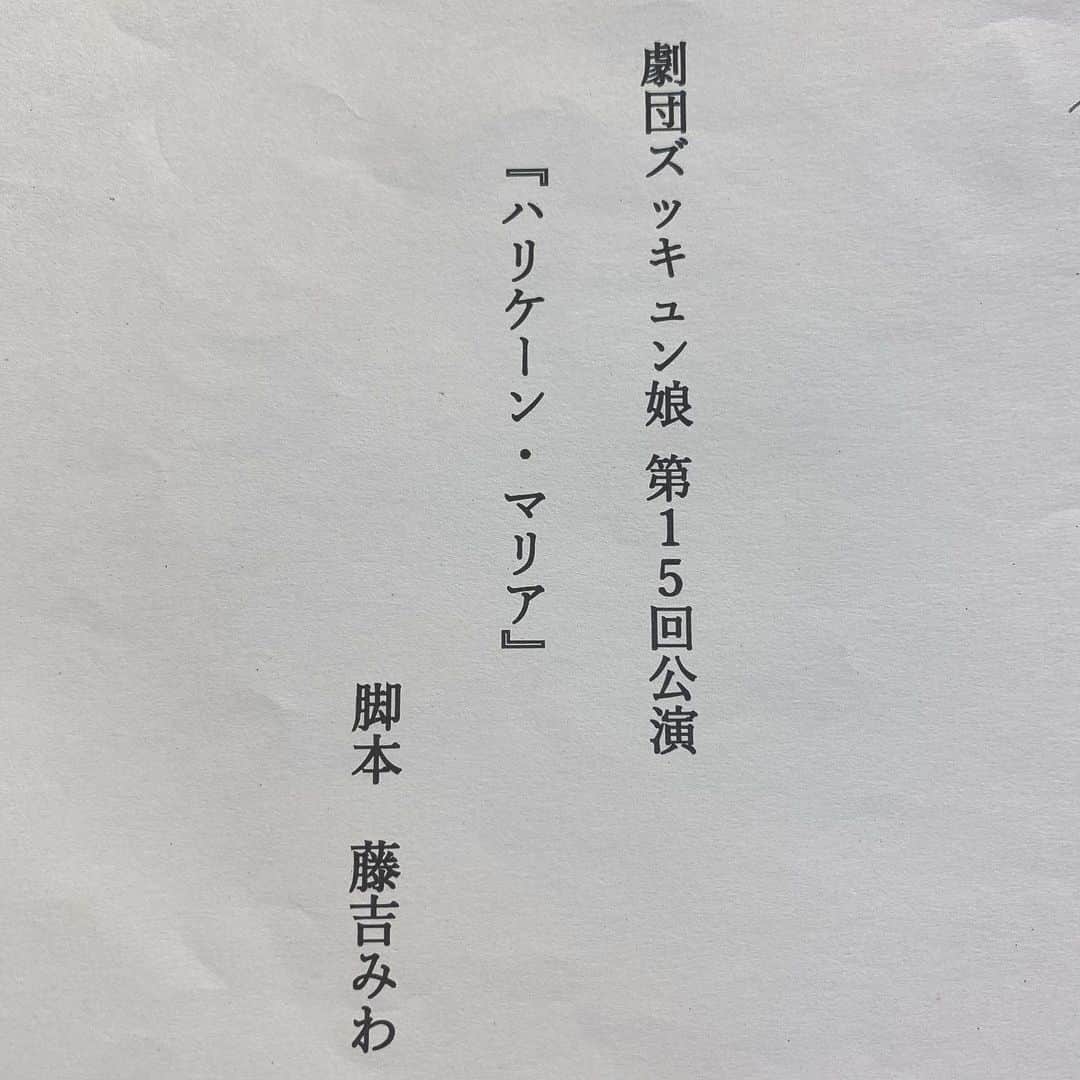 劇団ズッキュン娘 第15回公演
『ハリケーン・マリア』
脚本 藤吉みわ